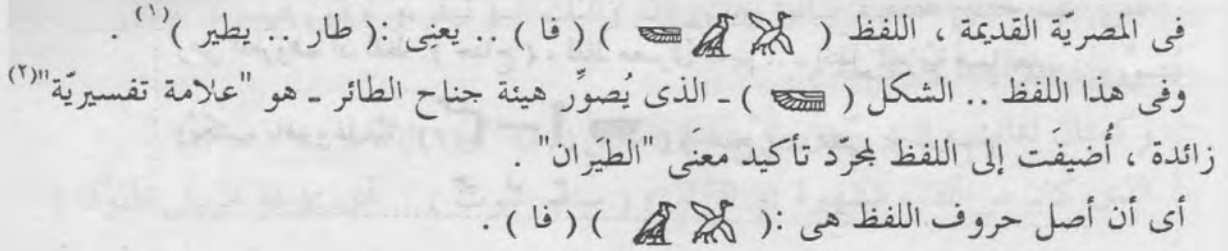 فى المصريّة القديمة ، اللفظ ( 𓅮 𓄿 𓆃 ) ( ڤا ) .. يعنِى :( طار .. يطير )(١) .
وفى هذا اللفظ .. الشكل ( 𓆃 ) ـ الذى يُصوِّر هيئة جناح الطائر ـ هو "علامة تفسيريّة"(٢)
زائدة ، أُضيفَت إلى اللفظ لمجرّد تأكيد معنَى "الطَيَران" .
أى أن أصل حروف اللفظ هى :( 𓅮 𓄿 ) ( ڤا ) .